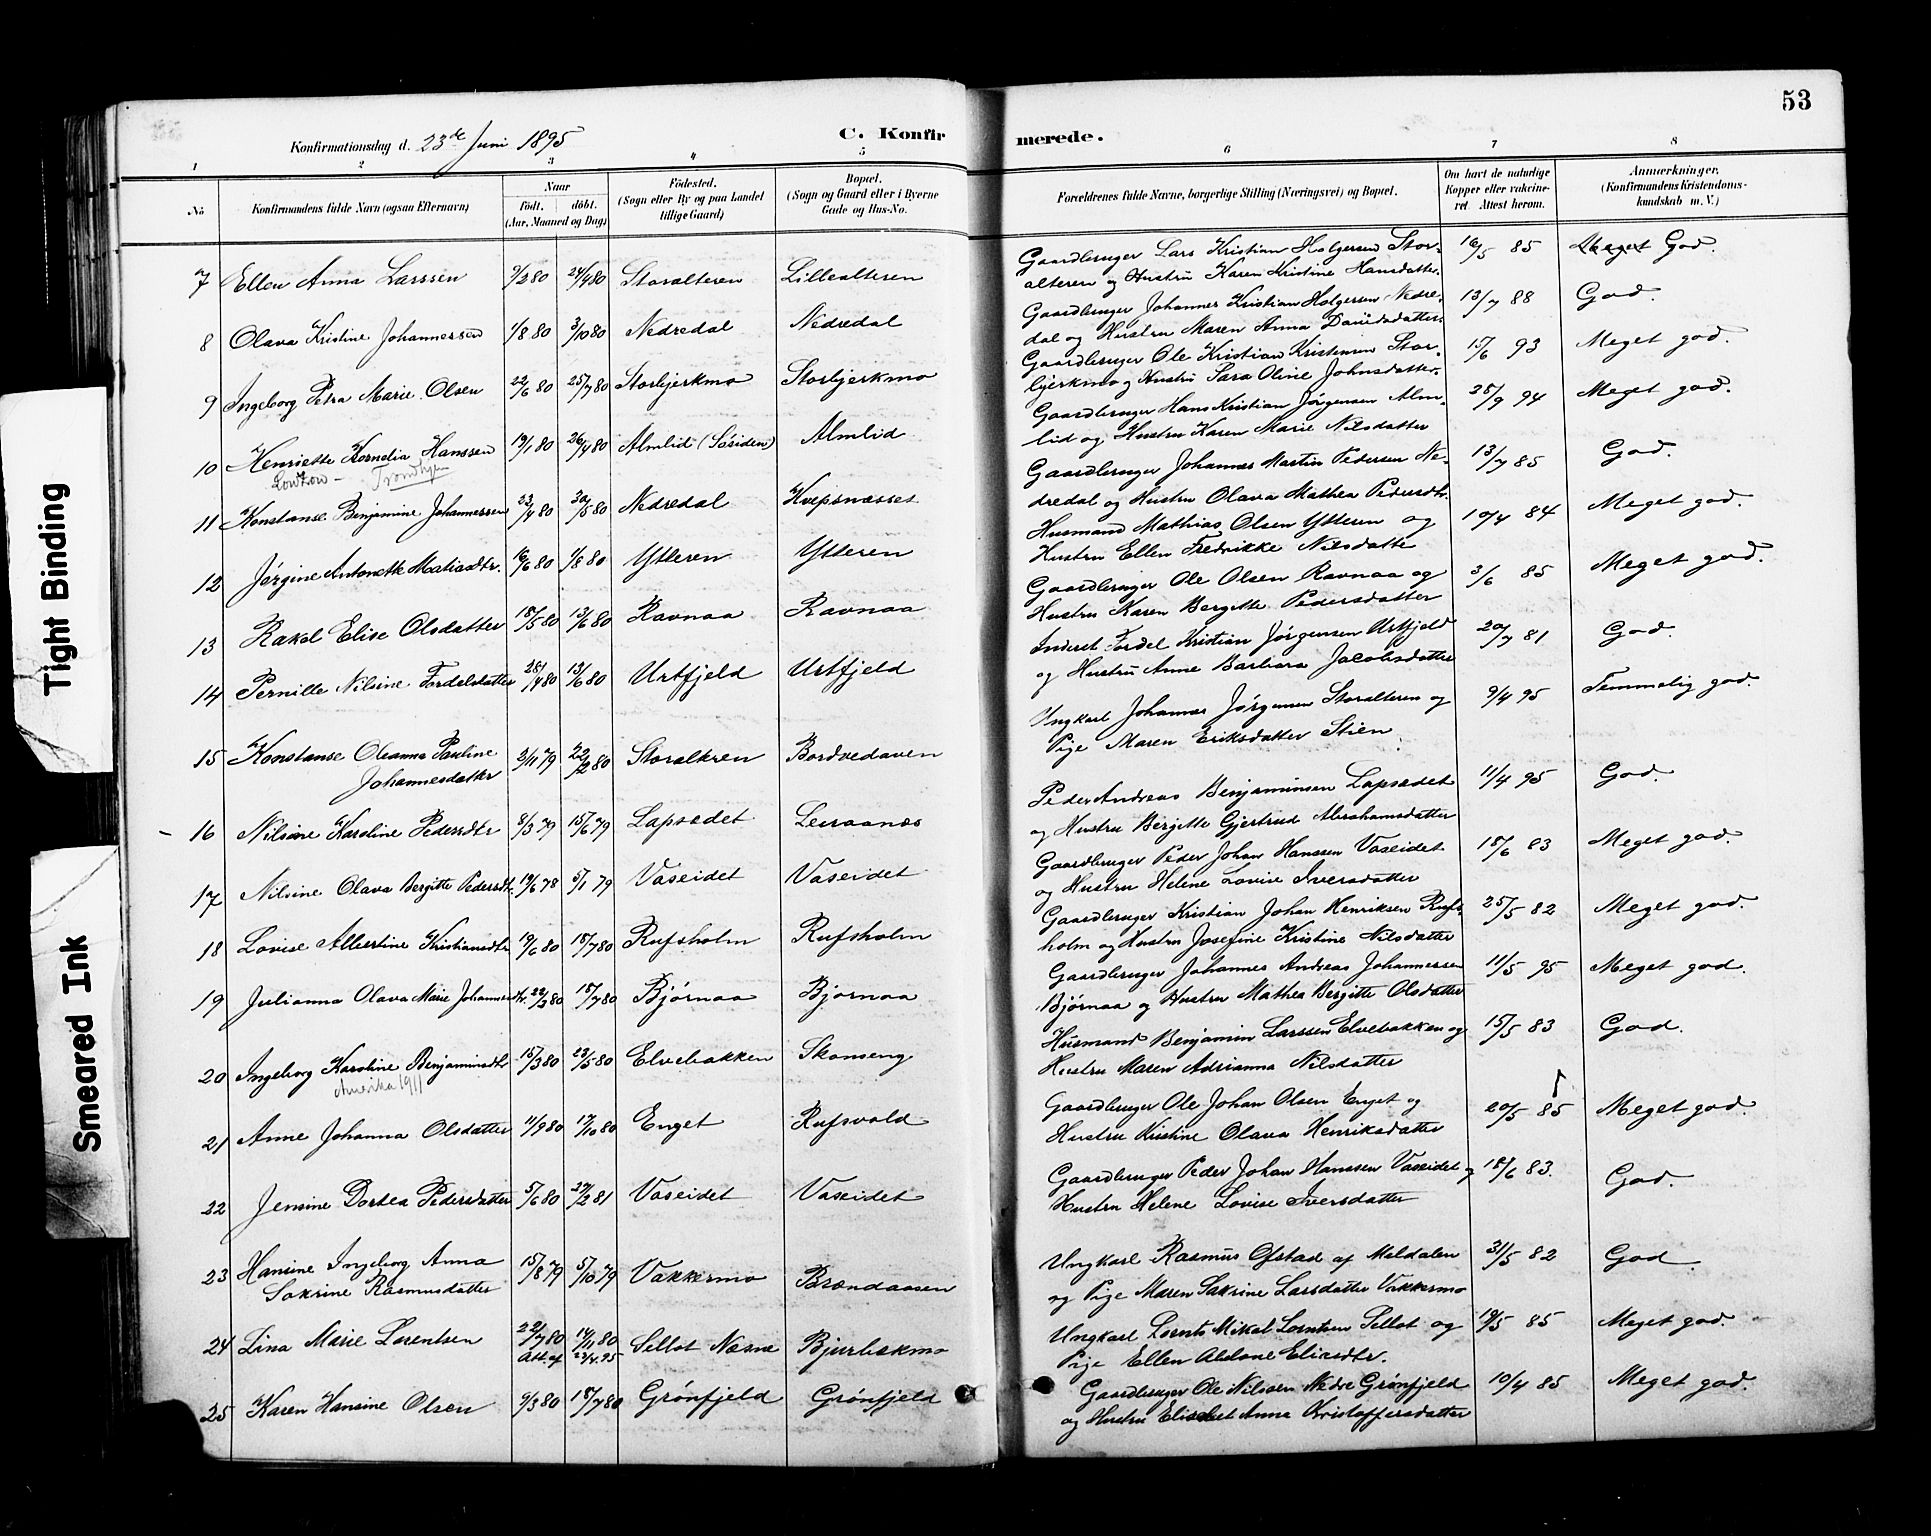 53
Konfirmationsdag d. 23de Juni 1895
C. Konfirmerede.
1 2 3 4 5 6 7 8
No
Konfirmandens fulde Navn (ogsaa Efternavn)
Naar
født. døbt.
(Aar, Maaned og Dag)
Fødested.
(Sogn eller By og paa Landet
tillige Gaard)
Bopæl.
(Sogn og Gaard eller i Byerne
Gade og Hus-No.
Forældrenes fulde Navne, borgerlige Stilling (Næringsvei) og Bopæl.
Om havt de naturlige
Kopper eller vakcine-
ret Attest herom.
Anmærkninger,
(Konfirmandens Kristendoms-
kundskab m. V.)
7 Ellen Anna Larssen 9/2 80 24/4 80 Storalteren Lillealteren Gaardbruger Lars Kristian Holgersen Stor- 16/5 85 Meget God.
alteren og Hustru Karen Kristine Hansdatter.
8 Olava Kristine Johannessen 1/8 80 3/10 80 Nedredal Nedredal Gaardbruger Johannes Kristian Holgersen Nedre- 13/7 88 God.
dal og Hustru Maren Anna Davidsdatter.
9 Ingeborg Petra Marie Olsen 22/6 80 25/7 80 Storbjerkmo Storbjerkmo Gaardbruger Ole Kristian Kristensen Stor- 15/6 93 Meget god.
bjerkmo og Hustru Sara Oline Johnsdatter.
10 Henriette Kornelia Hanssen 19/1 80 26/4 80 Almlid (Søsiden) Almlid Gaardbruger Hans Kristian Jørgensen Alm- 28/9 94 Meget god.
lid og Hustru Karen Marie Nilsdatter
Trondhjem
11 Konstanse Benjamine Johannessen 23/4 80 30/5 80 Nedredal Kvepsnæsset Gaardbruger Johannes Martin Pedersen Ne- 13/7 85 God.
dredal og Hustru Olava Mathea Pedersdtr.
12 Jørgine Antonette Matiasdtr. 16/6 80 1/8 80 Ytteren Ytteren Husmand Mathias Olsen Ytteren og 10/4 84 Meget god.
Hustru Ellen Fredrikke Nilsdatter
13 Rakel Elise Olsdatter 18/5 80 13/6 80 Ravnaa Ravnaa Gaardbruger Ole Olsen Ravnaa og 3/6 85 Meget god.
Hustru Karen Bergitte Pedersdatter
14 Pernille Nilsine Fordelsdatter 28/4 80 13/6 80 Urtfjeld Urtfjeld Inderst Fordel Kristian Jørgensen Urtfjeld 20/7 81 God.
og Hustru Anne Barbara Jacobsdatter
15 Konstanse Oleanna Pauline 3/11 79 22/2 80 Storalteren Bordvedaven Ungkarl Johannes Jørgensen Storalteren og 9/4 95 Temmelig god.
Johannesdatter Pige Maren Eriksdatter Stien
16 Nilsine Karoline Pedersdtr 8/3 79 15/6 79 Lapsædet Leiraanæs Peder Andreas Benjaminsen Lapsædet 11/4 95 God.
og Hustru Bergitte Gjertrud Abrahamsdatter
17 Nilsine Olava Bergitte Pedersdtr. 19/6 78 5/1 79 Vaseidet Vaseidet Gaardbruger Peder Johan Hanssen Vaseidet 18/6 83 Meget god.
og Hustru Helene Lovise Iversdatter
18 Lovise Albertine Kristiansdtr 19/6 80 18/7 80 Rufsholm Rufsholm Gaardbruger Kristian Johan Henriksen Rufs- 25/5 82 Meget god.
holm og Hustru Josefine Kristine Nilsdatter
19 Julianna Olava Marie Johannesdtr. 22/2 80 18/7 80 Bjørnaa Bjørnaa Gaardbruger Johannes Andreas Johannessen 11/5 95 Meget god.
Bjørnaa og Hustru Mathea Bergitte Olsdatter
20 Ingeborg Karoline Benjaminsdtr 15/3 80 23/5 80 Elvebakken Skonseng Husmand Benjamin Larssen Elvebakken og 15/5 83 God.
Amerika 1911 Hustru Maren Adrianna Nilsdatter
21 Anne Johanna Olsdatter 11/9 80 17/10 80 Enget Rufsvold Gaardbruger Ole Johan Olsen Enget og 20/5 85 Meget god.
Hustru Kristine Olava Henriksdatter
22 Jensine Dortea Pedersdatter 5/6 80 27/2 81 Vaseidet Vaseidet Gaardbruger Peder Johan Hanssen Vaseidet og 18/6 83. God.
Hustru Helene Lovise Iversdatter
23 Hansine Ingeborg Anna 15/8 79 5/10 79 Vakkermo Brændaasen Ungkarl Rasmus Ofstad af Meldalen 31/5 82 God
Sakrine Rasmusdatter og Pige Maren Sakrine Larsdatter Vakkermo
24 Lina Marie Lorentsen 22/7 80 14/11 80 Sellot Næsne Bjurbækmo Ungkarl Lornts Mikal Lorntsen Sellot og 19/5 85 Meget god.
Att. af 23/4 95 Pige Ellen Aldone Eliasdtr.
25 Karen Hansine Olsen 9/3 80 18/7 80 Grønfjeld Grønfjeld Gaardbruger Ole Nilssen Nedre Grønfjeld 19/4 85 Meget god.
og Hustru Elisabet Anna Kristoffersdatter
Tight Binding
Smeared Ink